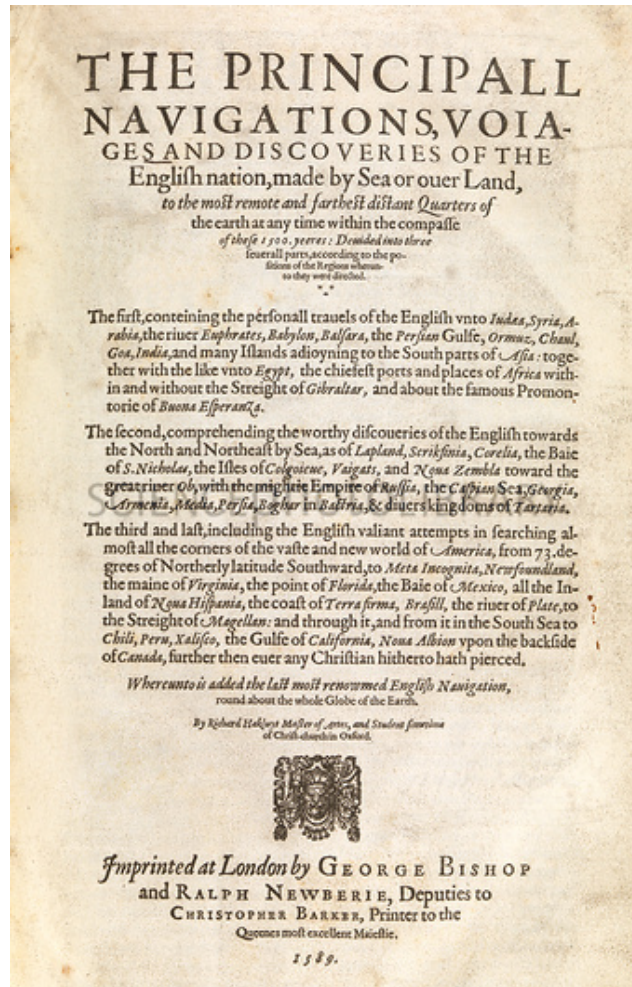 THE PRINCIPALL
NAVIGATIONS, VOIA-
GES AND DISCOVERIES OF THE
Engliſh nation, made by Sea or ouer Land,
to the moſt remote and fartheſt diſtant Quarters of
the earth at any time within the compaſſe
of theſe 1500. yeeres: Deuided into three
ſeuerall parts, according to the po-
ſitions of the Regions wherun-
to they were directed.
The firſt, conteining the perſonall trauels of the Engliſh vnto Iudæa, Syria, A-
rabia, the riuer Euphrates, Babylon, Balſara, the Perſian Gulfe, Ormuz, Chaul,
Goa, India, and many Iſlands adioyning to the South parts of Aſia: toge-
ther with the like vnto Egypt, the chiefeſt ports and places of Africa with-
in and without the Streight of Gibraltar, and about the famous Promon-
torie of Buona Eſperanza.
The ſecond, comprehending the worthy diſcoueries of the Engliſh towards
the North and Northeaſt by Sea, as of Lapland, Scrikſinia, Corelia, the Baie
of S. Nicholas, the Iſles of Colgoieue, Vaigats, and Noua Zembla toward the
great riuer Ob, with the mightie Empire of Ruſſia, the Caſpian Sea, Georgia,
Armenia, Media, Perſia, Boghar in Bactria, & diuers kingdoms of Tartaria.
The third and laſt, including the Engliſh valiant attempts in ſearching al-
moſt all the corners of the vaſte and new world of America, from 73. de-
grees of Northerly latitude Southward, to Meta Incognita, Newfoundland,
the maine of Virginia, the point of Florida, the Baie of Mexico, all the In-
land of Noua Hiſpania, the coaſt of Terra firma, Braſill, the riuer of Plate, to
the Streight of Magellan: and through it, and from it in the South Sea to
Chili, Peru, Xaliſco, the Gulfe of California, Noua Albion vpon the backſide
of Canada, further then euer any Chriſtian hitherto hath pierced.
Whereunto is added the laſt moſt renowmed Engliſh Nauigation,
round about the whole Globe of the Earth.
By Richard Hakluyt Maſter of Artes, and Student ſometime
of Chriſt-church in Oxford.
Imprinted at London by GEORGE BISHOP
and RALPH NEWBERIE, Deputies to
CHRISTOPHER BARKER, Printer to the
Queenes moſt excellent Maieſtie.
1589.